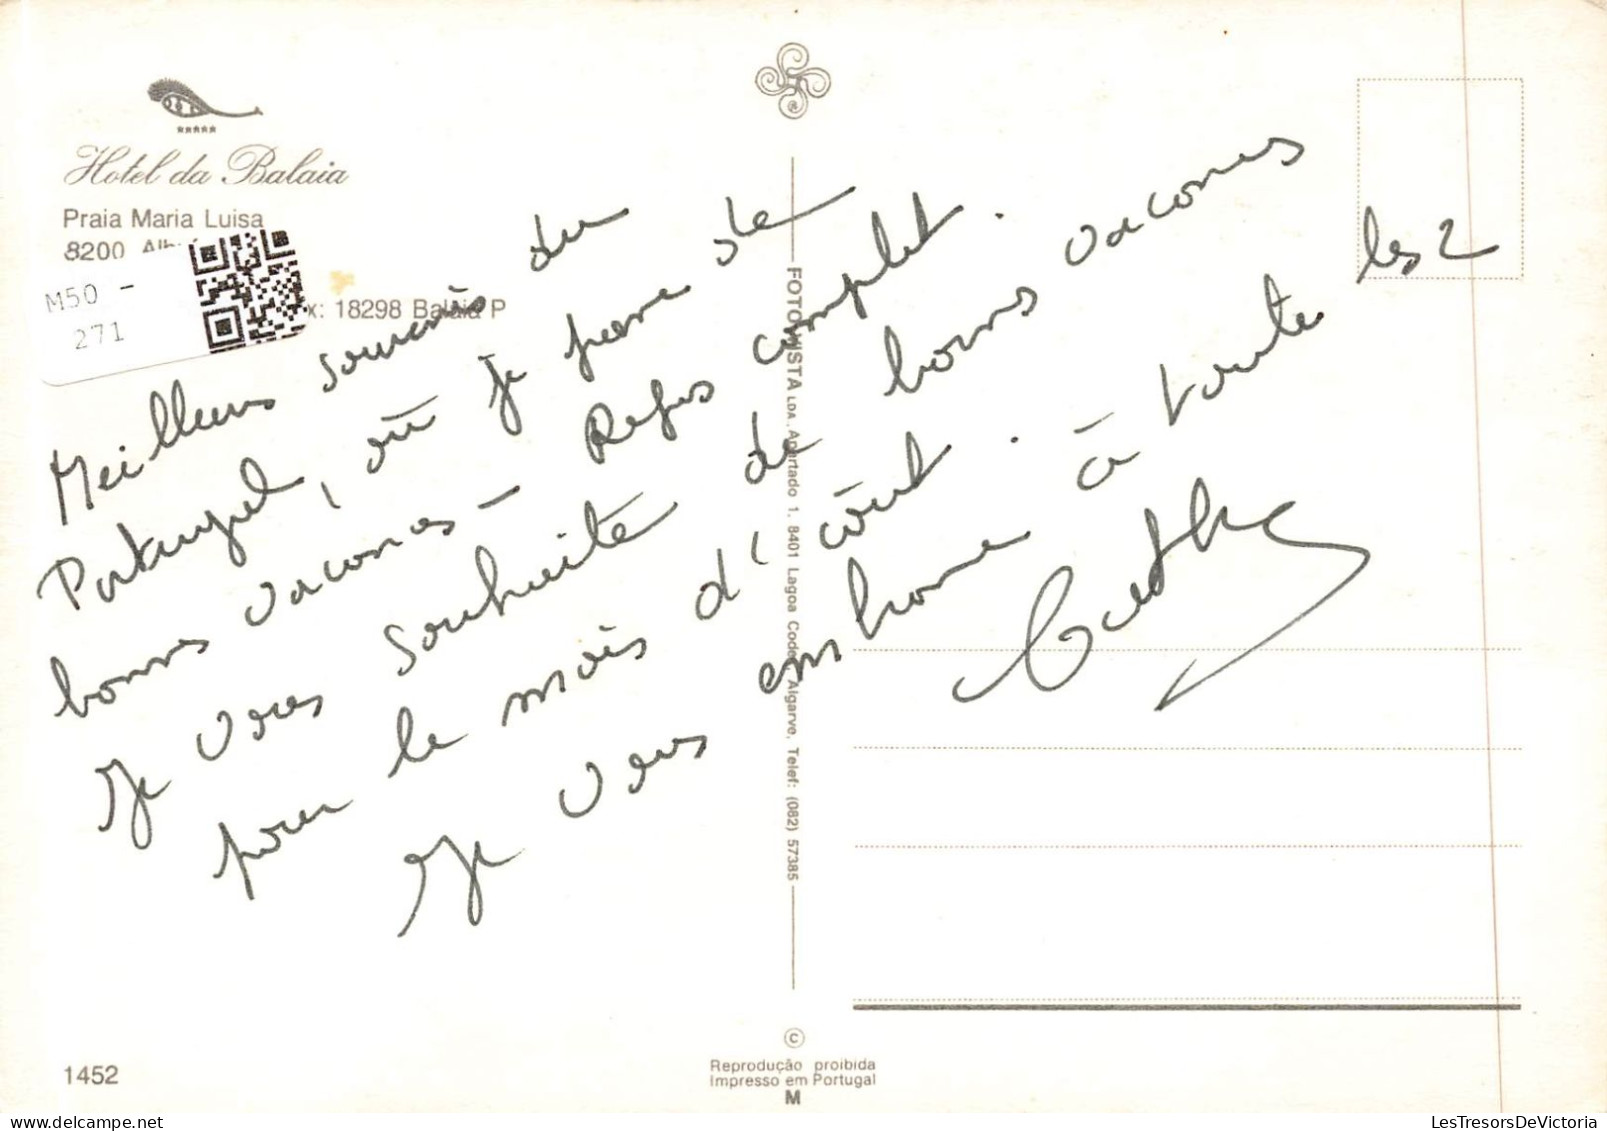 Hotel da Balaia
Praia Maria Luisa
8200
M50 -
271
x: 18298 Balaia P
Meilleurs souvenirs du
Portugal, où je passe de
bonnes vacances - Repos complet.
Je vous souhaite de bonnes vacances
pour le mois d'août. à toute les 2
Je vous embrasse
Cathy
FOTO VISTA LDA. Apartado 1. 8401 Lagoa Codex Algarve. Telef: (082) 57385
1452
©
Reprodução proibida
Impresso em Portugal
M
LesTresorsDeVictoria.com